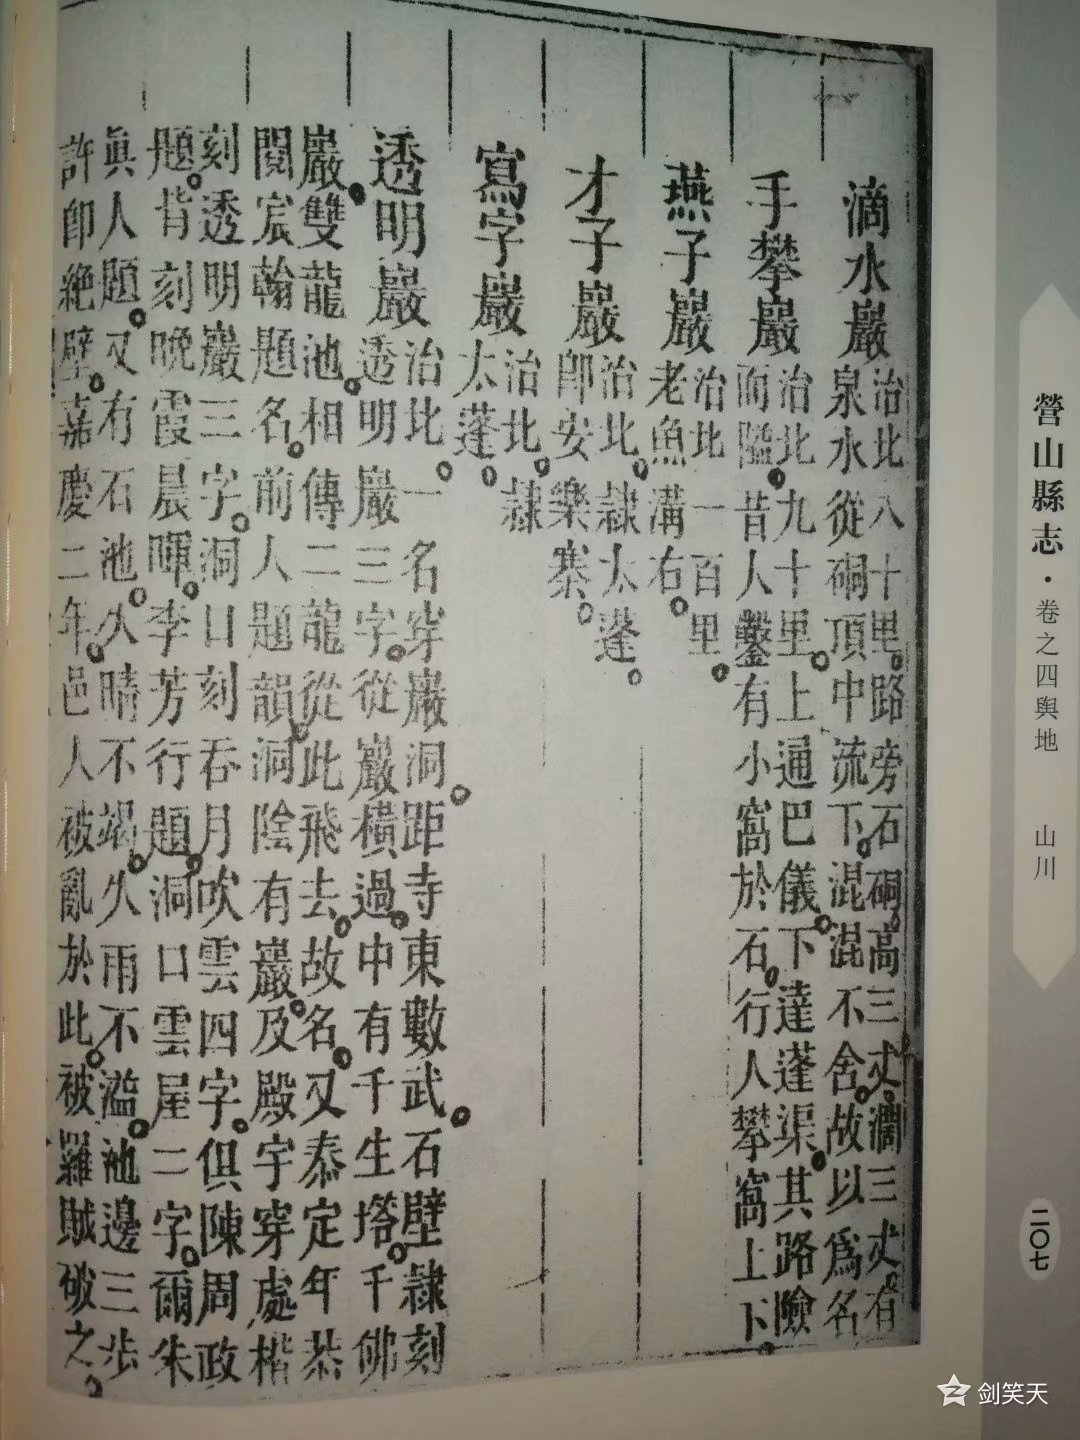 滴水巖
治北八十里路旁石硐高三丈濶三丈有
泉水從硐頂中流下混混不舍故以爲名
手攀巖
治北九十里上通巴儀下達蓬渠其路險
而隘昔人鑿有小窩於石行人攀窩上下
燕子巖
治北一百里
老魚溝右
才子巖
治北隷太蓬
即安樂寨
寫字巖
治北隷
太蓬
透明巖
治北一名穿巖洞距寺東數武石壁隷刻
透明巖三字從巖橫過中有千生塔千佛
巖雙龍池相傳二龍從此飛去故名又泰定年恭
閱宸翰題名前人題韻洞陰有巖及殿宇穿處楷
刻透明巖三字洞口刻吞月吹雲四字俱陳周政
題背刻晚霞晨暉李芳行題洞口雲屋二字爾朱
眞人題又有石池久晴不竭久雨不溢池邊三步
許即絶壁嘉慶二年邑人被亂於此被羅賊破之
營山縣志·卷之四輿地 山川
二〇七
剑笑天